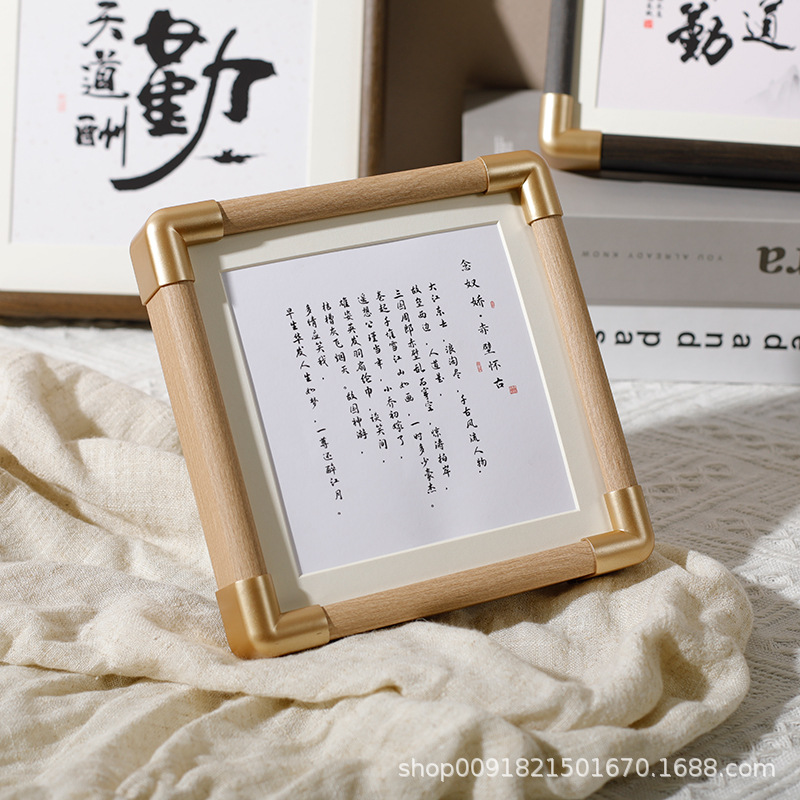 天道酬
勤
道
勤
念奴娇·赤壁怀古
大江东去，浪淘尽，千古风流人物。
故垒西边，人道是，
三国周郎赤壁乱石穿空，惊涛拍岸，
卷起千堆雪江山如画，一时多少豪杰。
遥想公瑾当年，小乔初嫁了，
雄姿英发羽扇纶巾，谈笑间，
樯橹灰飞烟灭。故国神游，
多情应笑我，
早生华发人生如梦，一尊还酹江月。
YOU ALREADY KNOW
ra
ed and pas
shop0091821501670.1688.com